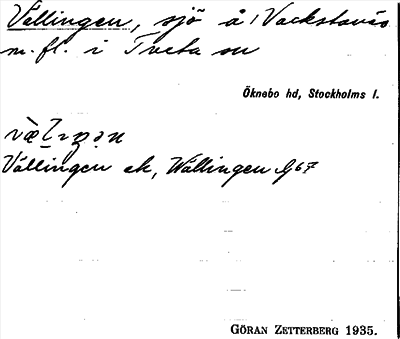 Vällingen, sjö å Vackstanäs
m. fl. i Tveta sn
Öknebo hd, Stockholms l.
Vällingen ek, Wällingen G67
GÖRAN ZETTERBERG 1935.